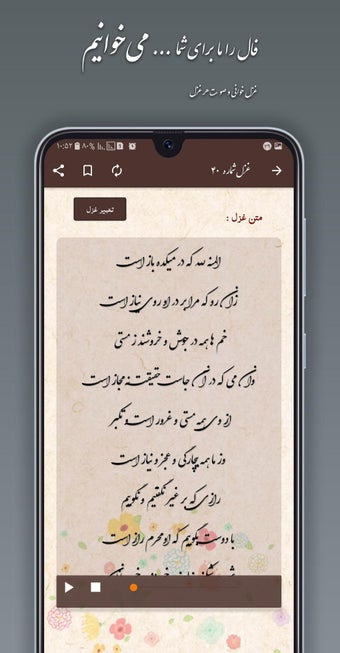 فال را ما برای شما ... می خوانیم
غزل خوانی و صوت هر غزل
۱۰:۵۲ ۸۰%
غزل شماره ۴۰
تعبیر غزل
متن غزل :
المنه لله که در میکده باز است
زان رو که مرا بر در او روی نیاز است
خم ها همه در جوش و خروشند ز مستی
وان می که در آن جاست حقیقت نه مجاز است
از وی همه مستی و غرور است و تکبر
وز ما همه بیچارگی و عجز و نیاز است
رازی که بر غیر نگفتیم و نگوییم
با دوست بگوییم که او محرم راز است